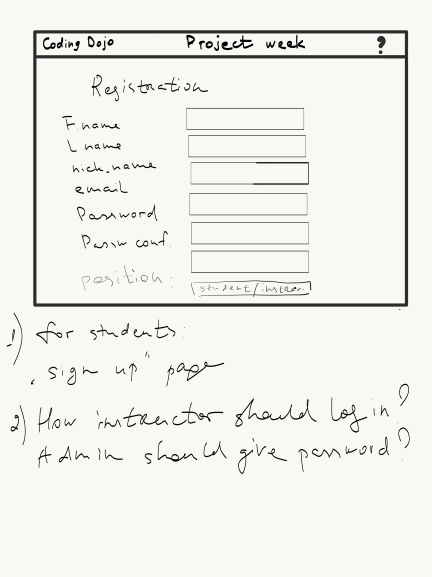 Coding Dojo Project week ?
Registration
F. name
L. name
nick_name
email
Password
Passw conf.
position: student/instor.
1) for students:
„sign up" page
2) How instructor should log in?
Admin should give password?